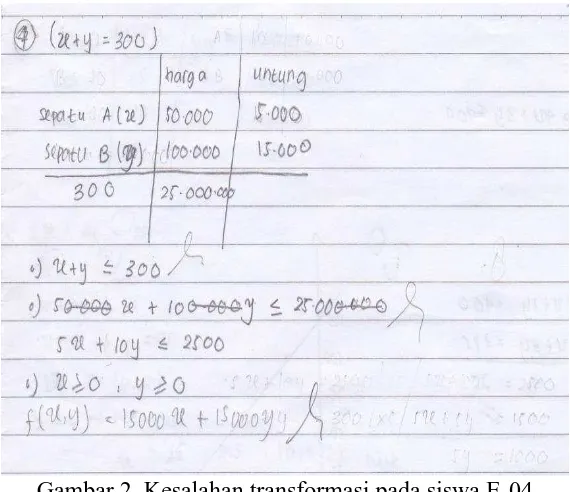 ④ (x+y = 300)
harga untung
sepatu A (x) 50.000 5.000
sepatu B (y) 100.000 15.000
300 25.000.000
•) x+y ≤ 300
•) 50.000 x + 100.000 y ≤ 25.000.000
5x + 10y ≤ 2500
•) x ≥ 0 , y ≥ 0
f(x,y) = 15000 x + 15000 y y
Gambar 2. Kesalahan transformasi pada siswa F-04